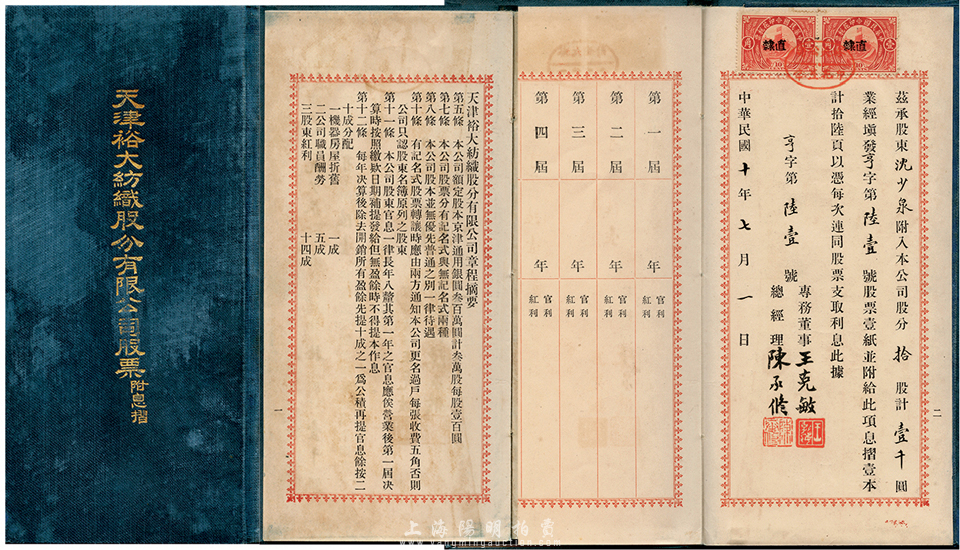 天津裕大紡織股分有限公司股票附息摺
天津裕大紡織股分有限公司章程摘要
第五條　本公司額定股本京津通用銀圓叁百萬圓計叁萬股每股壹百圓
第七條　本公司股票分有記名式與無記名式兩種
第八條　本公司股本並無優先普通之別一律待遇
第十條　有記名式股票轉讓時應由兩方通知本公司更名過戶每張收費五角否則
公司只認股東名簿原列之股東
第十一條　本公司股東官息一律長年八釐其第一年之官息應俟營業後第一屆決
算時按照繳欵日期補提發給但無盈餘時不得提本作息
第十二條　每年決算後除去開銷所有盈餘先提十成之一爲公積再提官息餘按二
十成分配
一機器房屋折舊　一成
二公司職員酬勞　五成
三股東紅利　十四成
一
第一屆　年　官利　紅利
第二屆　年　官利　紅利
第三屆　年　官利　紅利
第四屆　年　官利　紅利
直隸
直隸
茲承股東沈少泉附入本公司股分拾股計壹千圓
業經塡發亨字第陸壹號股票壹紙並附給此項息摺壹本
計拾陸頁以憑每次連同股票支取利息此據
專務董事王克敏
總經理陳承脩
亨字第陸壹號
中華民國十年七月一日
二
上海陽明拍賣
www.yangmingauction.com